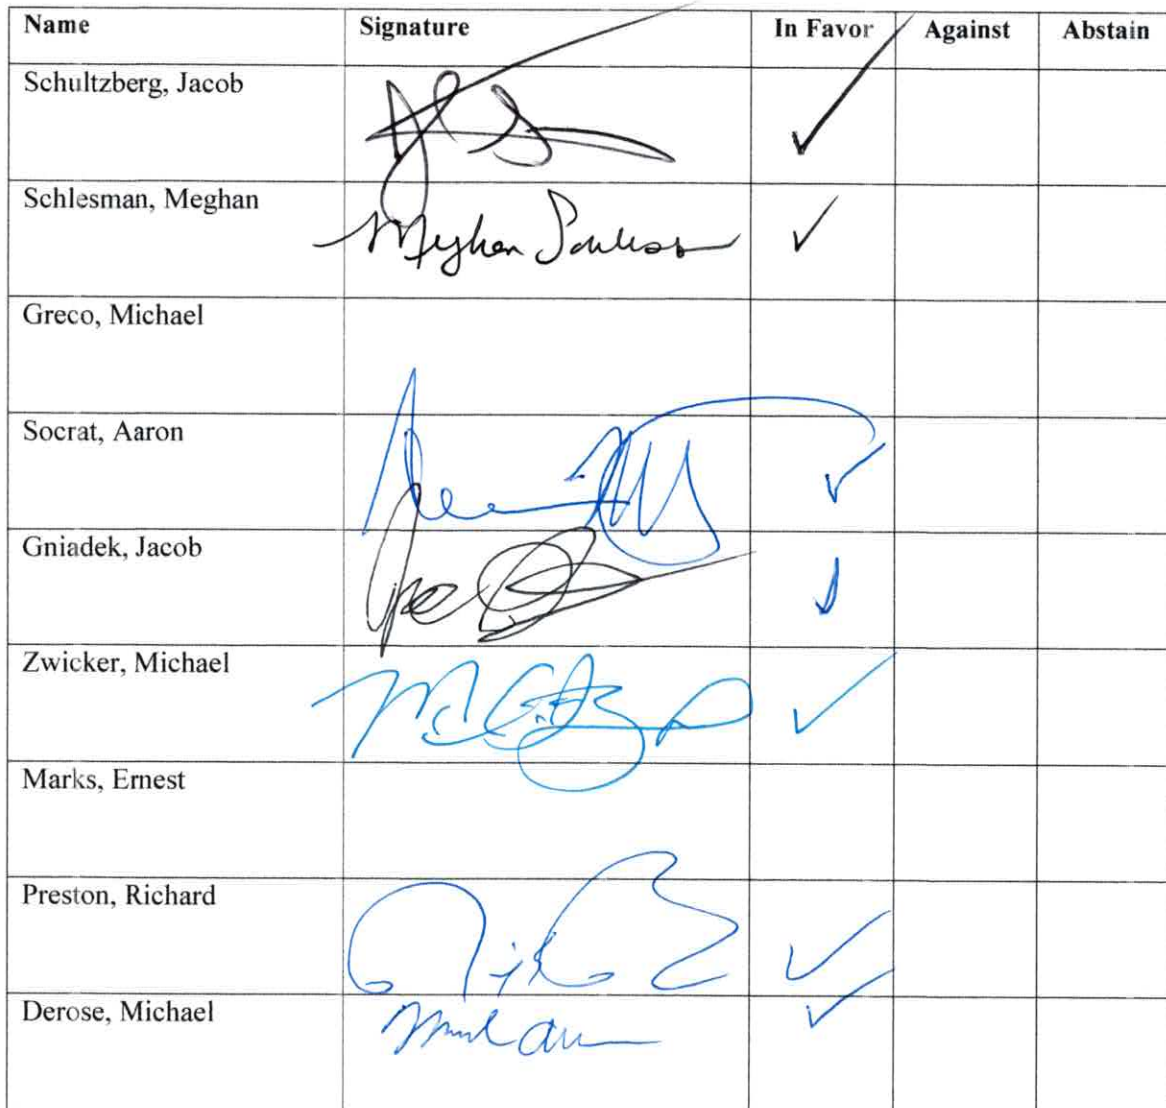 Name Signature In Favor Against Abstain
Schultzberg, Jacob ✓
Schlesman, Meghan Meghan ✓
Greco, Michael
Socrat, Aaron ✓
Gniadek, Jacob ✓
Zwicker, Michael ✓
Marks, Ernest
Preston, Richard ✓
Derose, Michael ✓